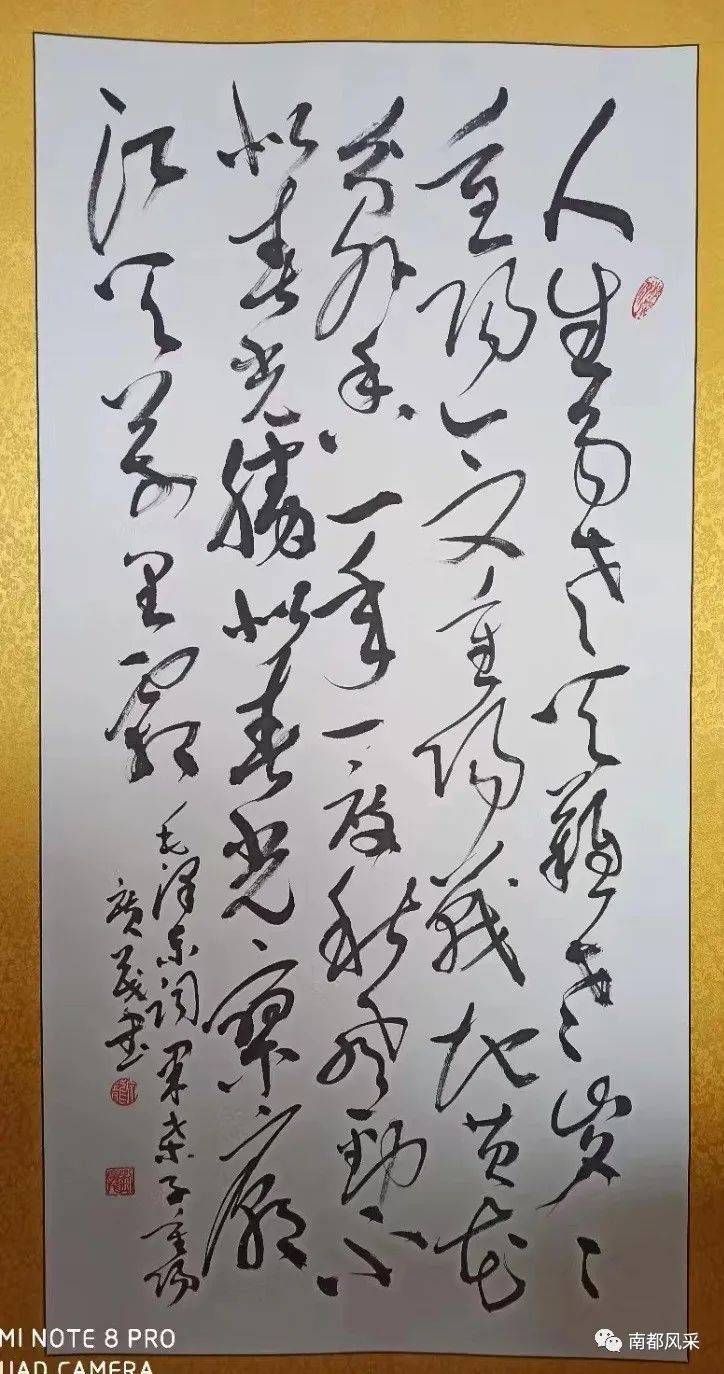 人生易老天難老岁々
重阳今又重阳战地黄花
分外香一年一度秋风勁不
似春光勝似春光寥廓
江天萬里霜
毛泽东词采桑子重阳
廣书
MI NOTE 8 PRO
UAD CAMERA
南都风采